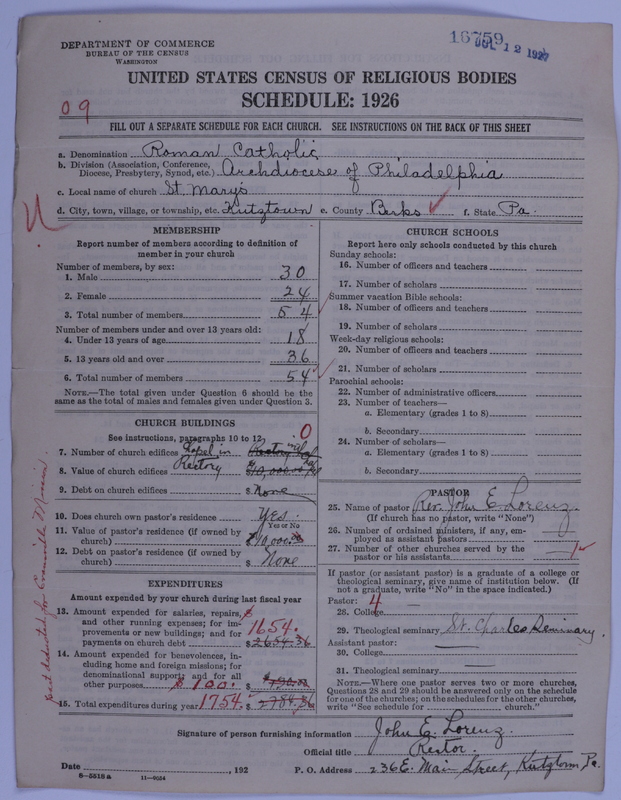 16759
JUL 12 1927
DEPARTMENT OF COMMERCE
BUREAU OF THE CENSUS
WASHINGTON
UNITED STATES CENSUS OF RELIGIOUS BODIES
SCHEDULE: 1926
09
FILL OUT A SEPARATE SCHEDULE FOR EACH CHURCH. SEE INSTRUCTIONS ON THE BACK OF THIS SHEET
a. Denomination Roman Catholic
b. Division (Association, Conference, Diocese, Presbytery, Synod, etc.) Archdiocese of Philadelphia
c. Local name of church St. Mary's
d. City, town, village, or township, etc. Kutztown e. County Berks f. State Pa.
MEMBERSHIP
Report number of members according to definition of member in your church
Number of members, by sex:
1. Male 30
2. Female 24
3. Total number of members 54
Number of members under and over 13 years old:
4. Under 13 years of age 18
5. 13 years old and over 36
6. Total number of members 54
NOTE.—The total given under Question 6 should be the same as the total of males and females given under Question 3.
CHURCH BUILDINGS
See instructions, paragraphs 10 to 12
0
7. Number of church edifices Chapel in Rectory
8. Value of church edifices $10,000.00
9. Debt on church edifices $ None
10. Does church own pastor's residence Yes.
Yes or No
11. Value of pastor's residence (if owned by church) $10,000.00
12. Debt on pastor's residence (if owned by church) $ None
EXPENDITURES
Amount expended by your church during last fiscal year
13. Amount expended for salaries, repairs, and other running expenses; for improvements or new buildings; and for payments on church debt $ 1654. $2654.36
14. Amount expended for benevolences, including home and foreign missions; for denominational support; and for all other purposes $100.
15. Total expenditures during year 1754. $2784.36
CHURCH SCHOOLS
Report here only schools conducted by this church
Sunday schools:
16. Number of officers and teachers
17. Number of scholars
Summer vacation Bible schools:
18. Number of officers and teachers
19. Number of scholars
Week-day religious schools:
20. Number of officers and teachers
21. Number of scholars
Parochial schools:
22. Number of administrative officers
23. Number of teachers—
a. Elementary (grades 1 to 8)
b. Secondary
24. Number of scholars—
a. Elementary (grades 1 to 8)
b. Secondary
PASTOR
25. Name of pastor Rev. John E. Lorenz.
(If church has no pastor, write "None")
26. Number of ordained ministers, if any, employed as assistant pastors
27. Number of other churches served by the pastor or his assistants 1
If pastor (or assistant pastor) is a graduate of a college or theological seminary, give name of institution below. (If not a graduate, write "No" in the space indicated.)
Pastor: 4
28. College
29. Theological seminary St. Charles Seminary.
Assistant pastor:
30. College
31. Theological seminary
NOTE.—Where one pastor serves two or more churches, Questions 28 and 29 should be answered only on the schedule for one of the churches; on the schedules for the other churches, write "See schedule for church."
Signature of person furnishing information John E. Lorenz.
Official title Rector.
Date , 192
P. O. Address 236 E. Main Street, Kutztown, Pa.
8-5518a 11-9034